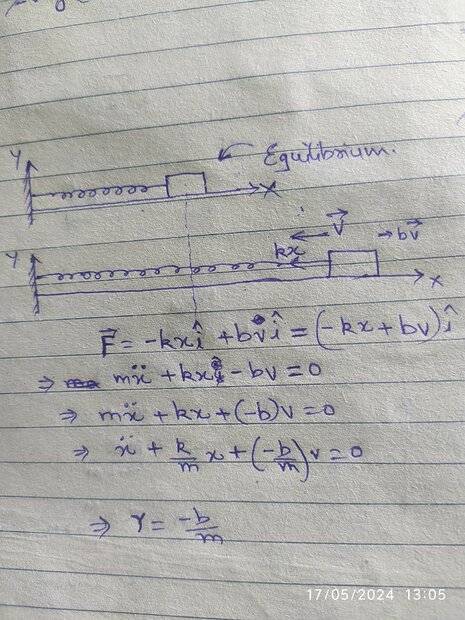 Y
Equilibrium.
X
Y
kx
v⃗
→bv⃗
X
F⃗ = -kxî + bvî = (-kx + bv)î
⇒ mẍ + kx - bv = 0
⇒ mẍ + kx + (-b)v = 0
⇒ ẍ + k/m x + (-b/m)v = 0
⇒ r = -b/m
17/05/2024 13:05